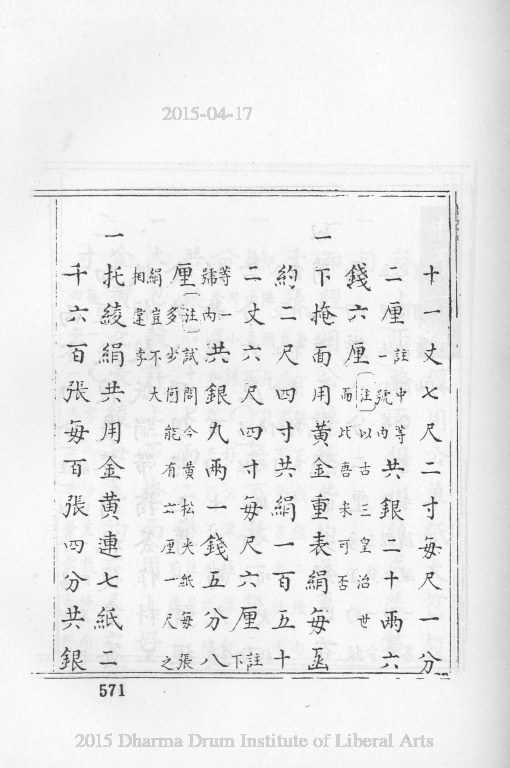 2015-04-17
十一丈七尺二寸每尺一分
二厘註中等一號內共銀二十兩六
錢六厘(注)以古三皇治世而比吾未可否
一下掩面用黃金重表絹每函
約二尺四寸共絹一百五十
二丈六尺四寸每尺六厘註下
等一號內共銀九兩一錢五分八
厘(注)試問今黃松夾紙每張多少何能有六厘一尺之
絹豈不大相違乎
一托綾絹共用金黃連七紙二
千六百張每百張四分共銀
571
2015 Dharma Drum Institute of Liberal Arts